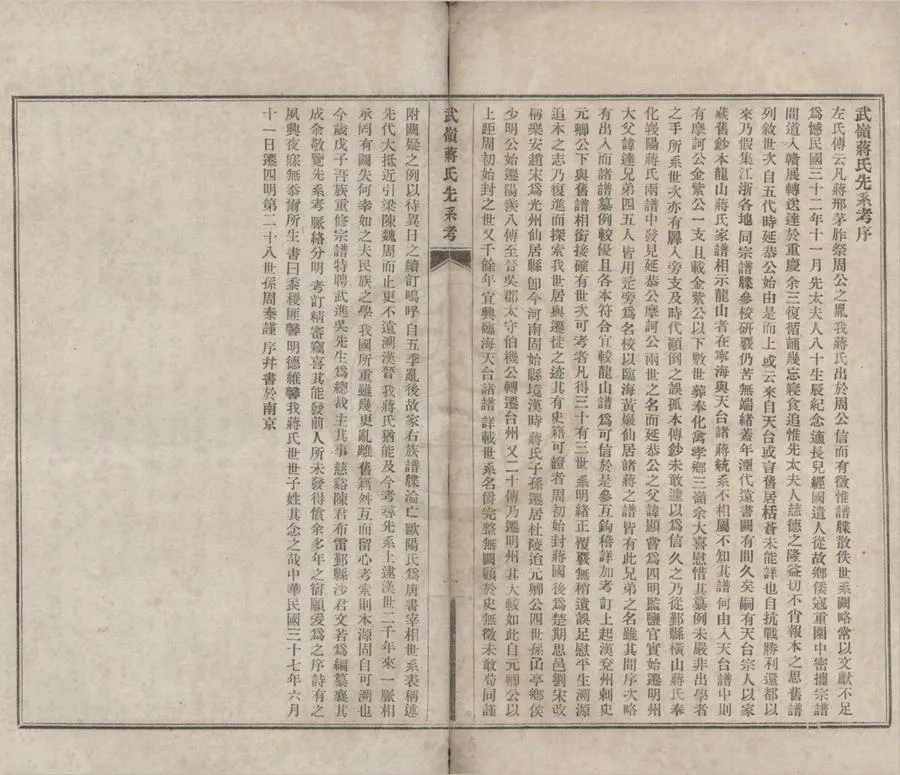 武嶺蔣氏先系考序
左氏傳云凡蔣邢茅胙祭周公之胤我蔣氏出於周公信而有徵惟譜牒散佚世系闕略常以文獻不足
爲憾民國三十二年十一月先太夫人八十生辰紀念適長兒經國遣人從故鄉倭寇重圍中密攜宗譜
間道入贛展轉送達於重慶余三復循誦幾忘寢食追惟先太夫人慈德之隆益切不肖報本之思舊譜
列敘世次自五代時延恭公始由是而上或云來自天台或言舊居栝蒼未能詳也自抗戰勝利還都以
來乃假集江浙各地同宗譜牒參校研覈仍苦無端緒蓋年湮代遠書闕有間久矣嗣有天台宗人以家
藏舊鈔本龍山蔣氏家譜相示龍山者在寧海與天台諸蔣統系不相屬不知其譜何由入天台譜中則
有摩訶公金紫公一支且載金紫公以下數世葬奉化禽孝鄉三嶺余大喜慰惜其纂例未嚴非出學者
之手所系世次亦有羼人旁支及時代顚倒之誤孤本傳鈔未敢遽以爲信久之乃從鄞縣橫山蔣氏奉
化峩陽蔣氏兩譜中發見延恭公摩訶公兩世之名而延恭公之父諱顯嘗爲四明監鹽官實始遷明州
大父諱達兄弟四五人皆用辵旁爲名校以臨海黃巖仙居諸蔣之譜皆有此兄弟之名雖其間序次略
有出入而諸譜纂例較優且各本符合宜較龍山譜爲可信於是參互鉤稽詳加考訂上起漢兗州刺史
元卿公下與舊譜相銜接確有世次可考者凡得三十有三世系明緒正覆覈無稍遺誤足慰平生溯源
追本之志乃復進而探索我世居與遷徒之迹其有史籍可證者周初始封蔣國後爲楚期思邑劉宋改
稱樂安趙宋爲光州仙居縣卽今河南固始縣境漢時蔣氏子孫遷居杜陵迨元卿公四世孫㔽亭鄉侯
少明公始遷陽羨八傳至晉吳郡太守伯機公轉遷台州又二十傳乃遷明州其大較如此自元卿公以
上距周初始封之世又千餘年宜興臨海天台諸譜詳載世系名爵完整無闕顧於史無徵未敢苟同謹
武嶺蔣氏先系考
一
附闕疑之例以待異日之續訂嗚呼自五季亂後故家右族譜牒淪亡歐陽氏爲唐書宰相世系表稱述
先代大抵近引梁陳魏周而止更不遠溯漢晉我蔣氏猶能及今考尋先系上逮漢世二千年來一脈相
承罔有闕失何幸如之夫民族之學我國所重雖幾更亂離舊籍舛互而留心考索則本源固自可溯也
今歲戊子吾族重修宗譜特聘武進吳先生爲總裁主其事慈谿陳君布雷鄞縣沙君文若爲編纂襄其
成余敬覽先系考脈絡分明考訂精審竊喜其能發前人所未發得償余多年之宿願爰爲之序詩有之
夙興夜寐無忝爾所生書曰黍稷匪馨明德維馨我蔣氏世世子姓其念之哉中華民國三十七年六月
十一日遷四明第二十八世孫周泰謹序幷書於南京